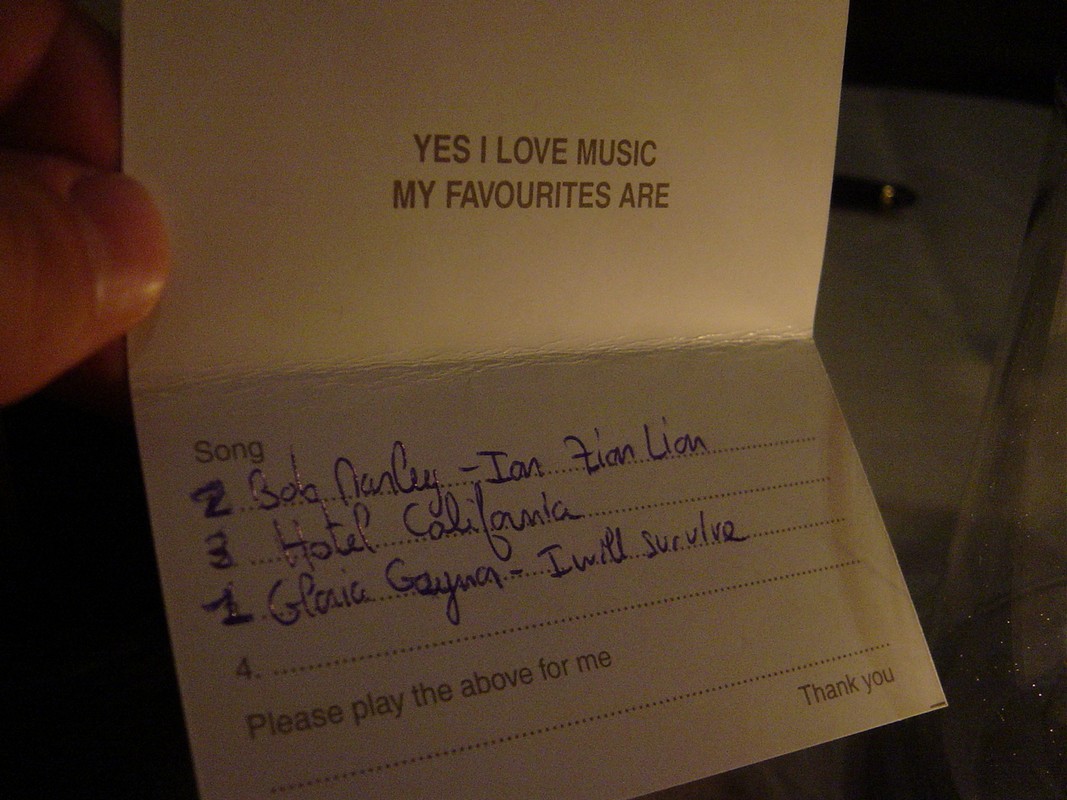 YES I LOVE MUSIC
MY FAVOURITES ARE
Song
2 Bob Marley - Ion Zion Lion
3 Hotel California
1 Gloria Gaynor - I will survive
4.
Please play the above for me
Thank you